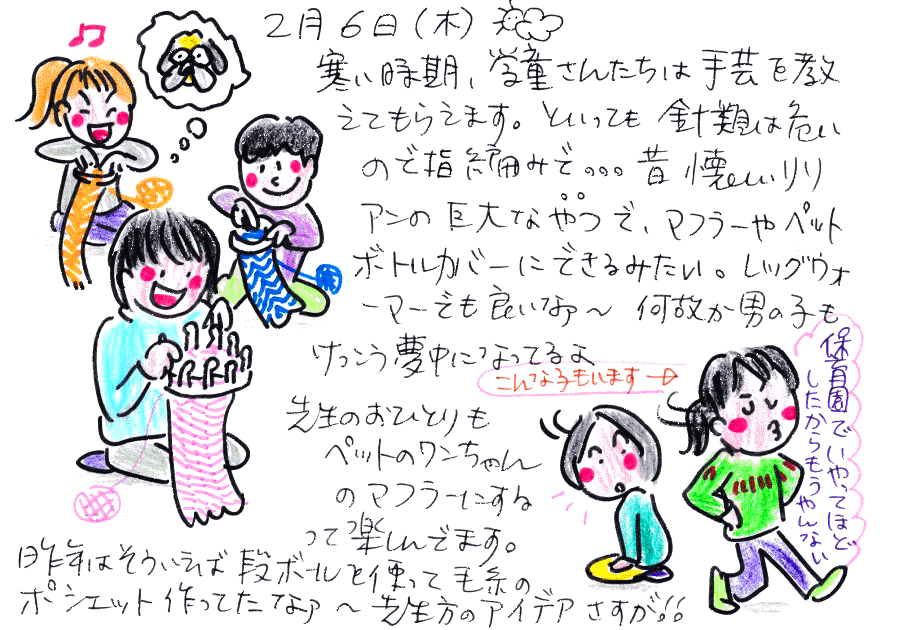 2月6日(木)
寒い時期、学童さんたちは手芸を教
えてもらえます。といっても針類は危い
ので指編みで。。。昔懐しいリリ
アンの巨大なやつで、マフラーやペット
ボトルカバーにできるみたい。レッグウォ
ーマーでも良いなァ〜 何故か男の子も
けっこう夢中になってるよ
こんな子もいます→
先生のおひとりも
ペットのワンちゃん
のマフラーにする
って楽しんでます。
昨年はそういえば段ボールを使って毛糸の
ポシェット作ってたなァ〜 先生方のアイデアさすが!!
保育園でいやってほど
したからもうやんない